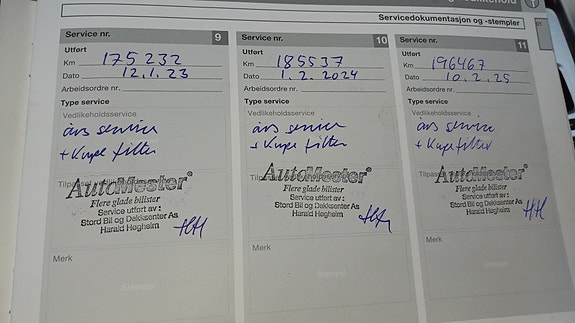 Servicedokumentasjon og -stempler
Service nr. 9
Utført
Km 175 232
Dato 12.1.23
Arbeidsordre nr.
Type service
Vedlikeholdsservice
års service
+ Kupe filter
AutoMester
Flere glade bilister
Service utført av:
Stord Bil og Dekksenter As
Harald Høgheim
HH
Merk
Stempel
Service nr. 10
Utført
Km 185537
Dato 1.2.2024
Arbeidsordre nr.
Type service
Vedlikeholdsservice
års service
+ Kupe filter
AutoMester
Flere glade bilister
Service utført av:
Stord Bil og Dekksenter As
Harald Høgheim
Merk
Stempel
Service nr. 11
Utført
Km 196467
Dato 10.2.25
Arbeidsordre nr.
Type service
Vedlikeholdsservice
års service
+ Kupe filter
AutoMester
Flere glade bilister
Service utført av:
Stord Bil og Dekksenter As
Harald Høgheim
HH
Merk
Stempel